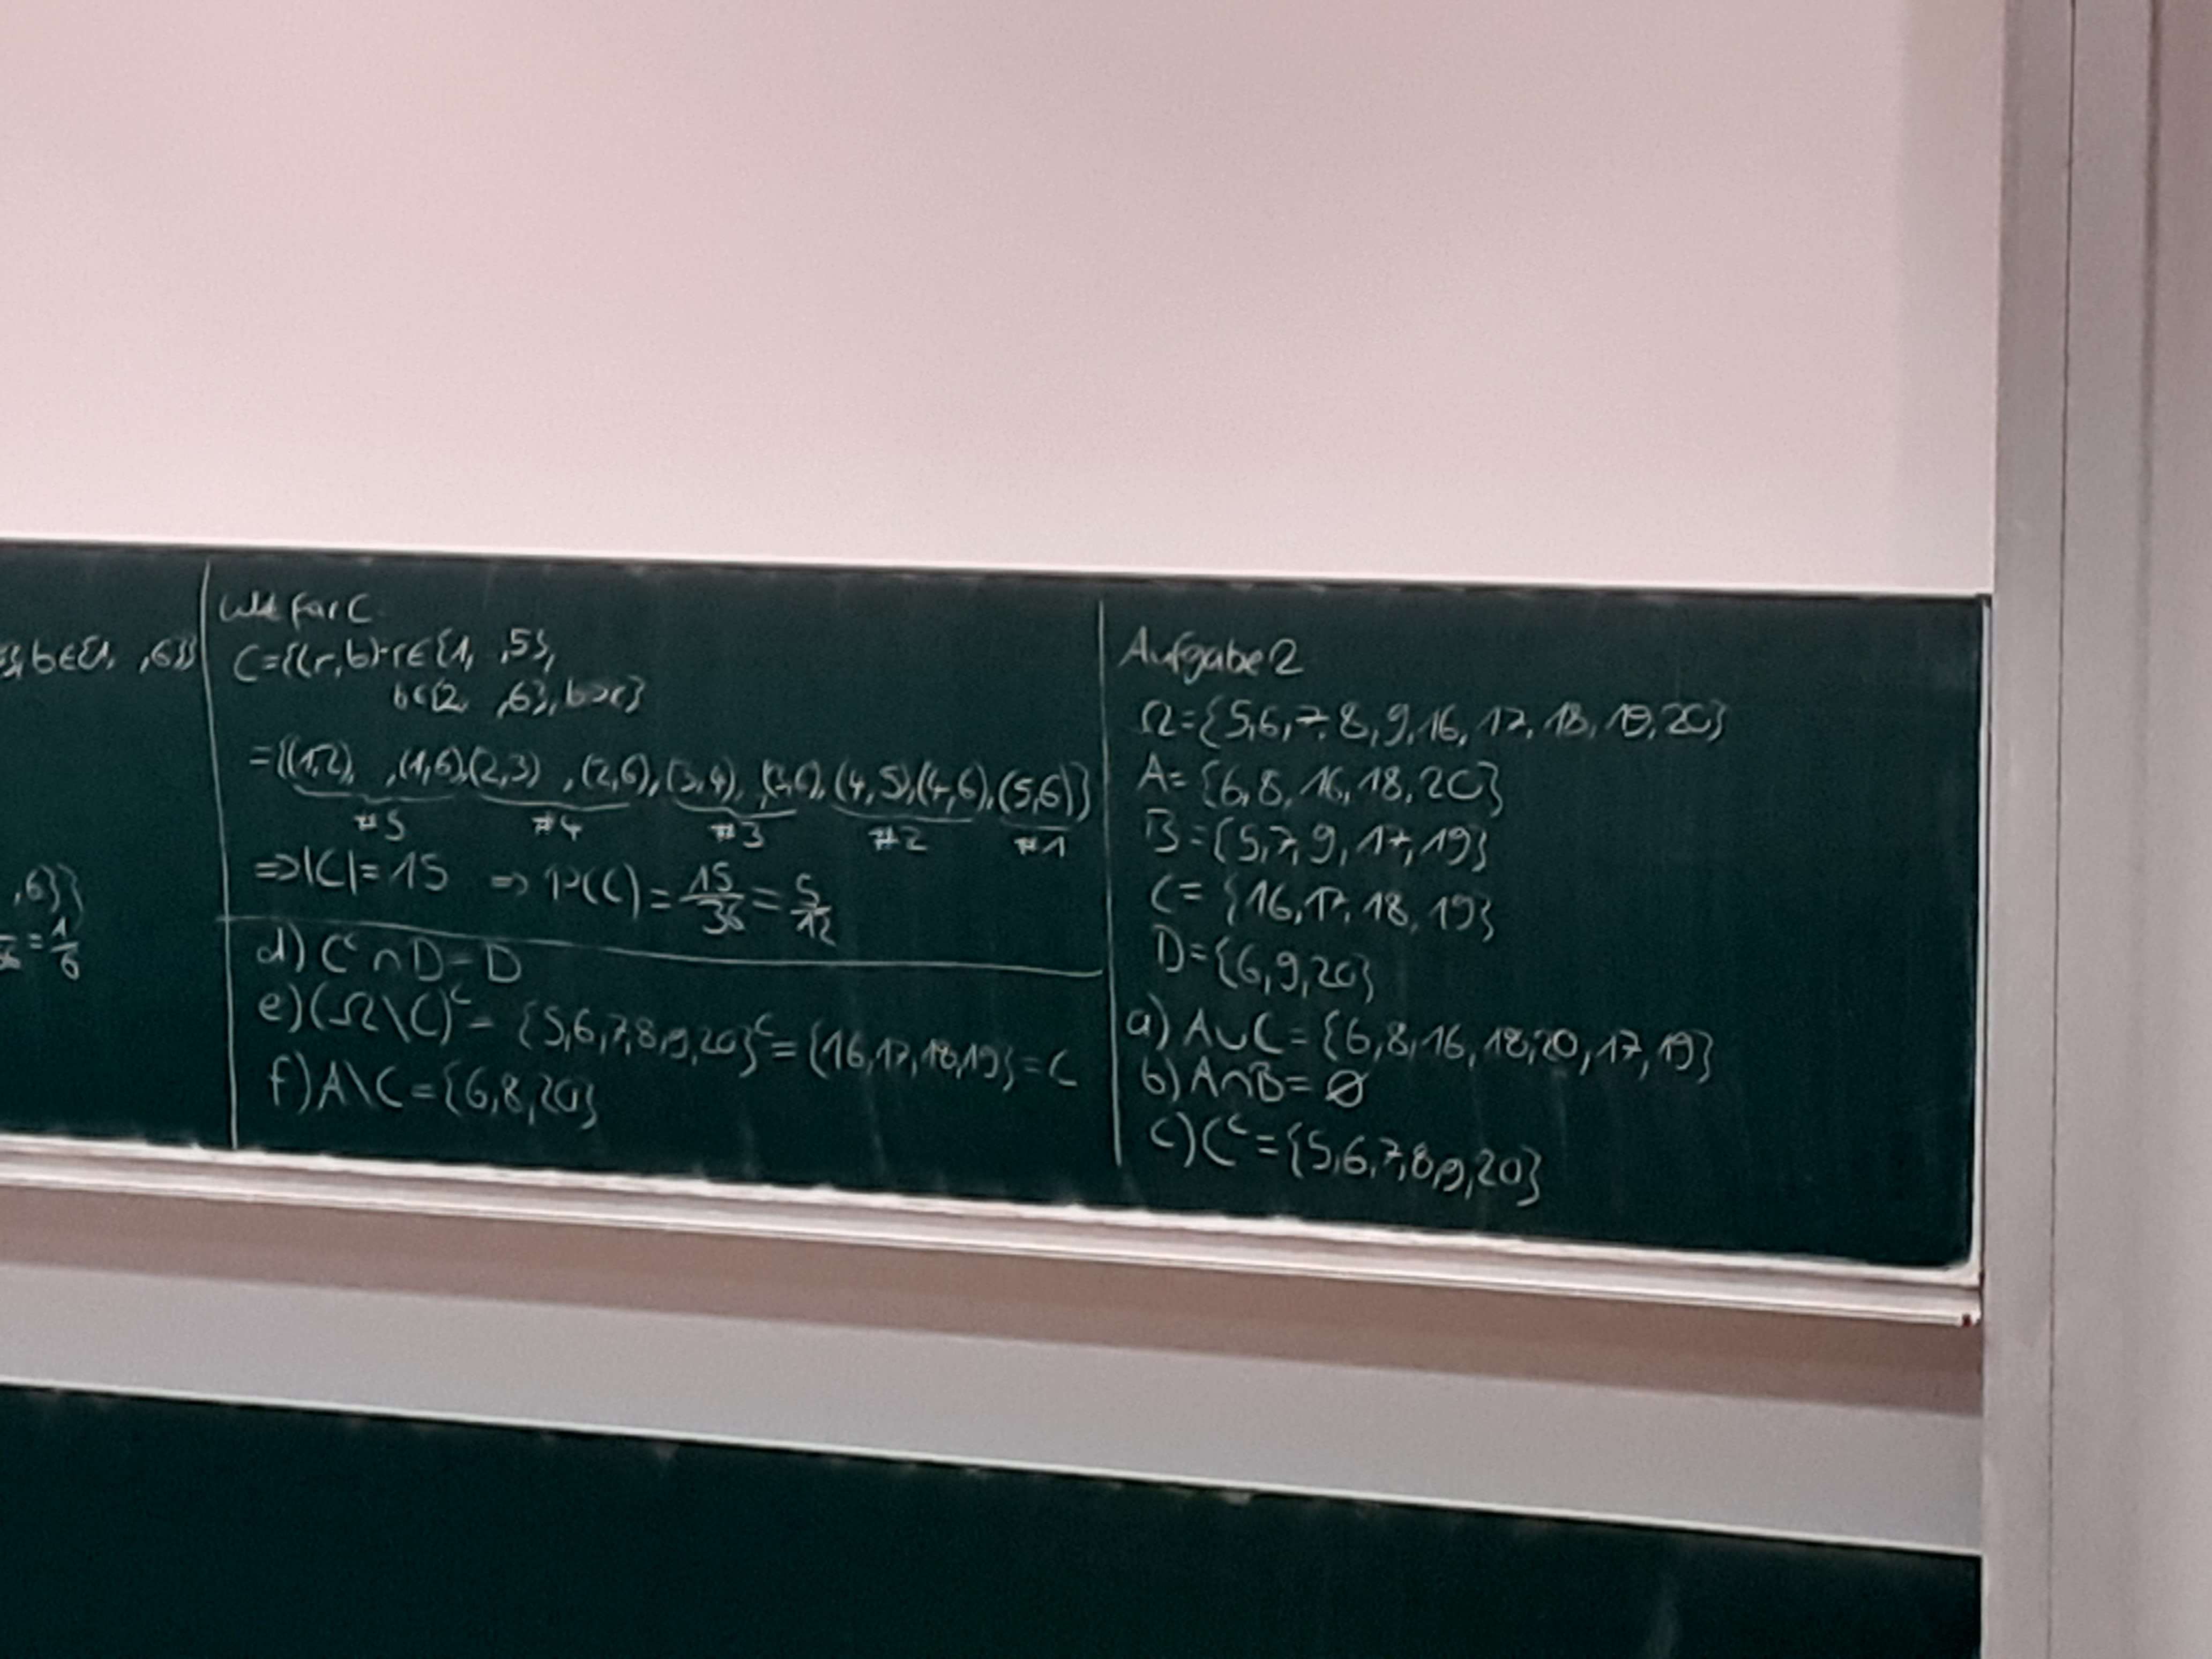 b∈{1, ,6}}
,6}}
= 1/6
C={(r,b): r∈{1, ,5},
b∈{2, ,6}, b>r}
={(1,2), ,(1,6),(2,3) ,(2,6),(3,4), ,(3,6),(4,5),(4,6),(5,6)}
#5 #4 #3 #2 #1
=>|C|=15 => P(C)= 15/36 = 5/12
d) Cᶜ∩D=D
e) (Ω\C)ᶜ= {5,6,7,8,9,20}ᶜ= {16,17,18,19}=C
f) A\C={6,8,20}
Aufgabe 2
Ω={5,6,7,8,9,16,17,18,19,20}
A={6,8,16,18,20}
B={5,7,9,17,19}
C={16,17,18,19}
D={6,9,20}
a) A∪C={6,8,16,18,20,17,19}
b) A∩B=Ø
c) Cᶜ={5,6,7,8,9,20}